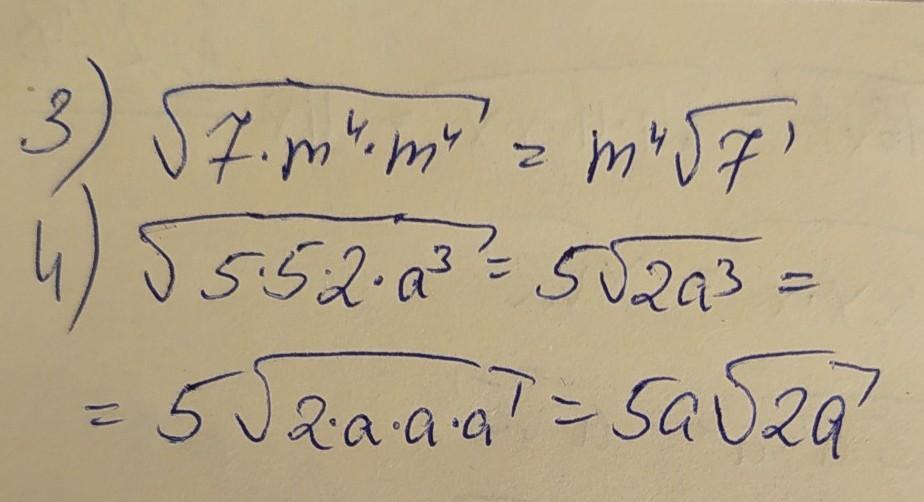 3) √(7·m⁴·m⁴) = m⁴√7
4) √(5·5·2·a³) = 5√(2a³) =
= 5√(2·a·a·a) = 5a√(2a)